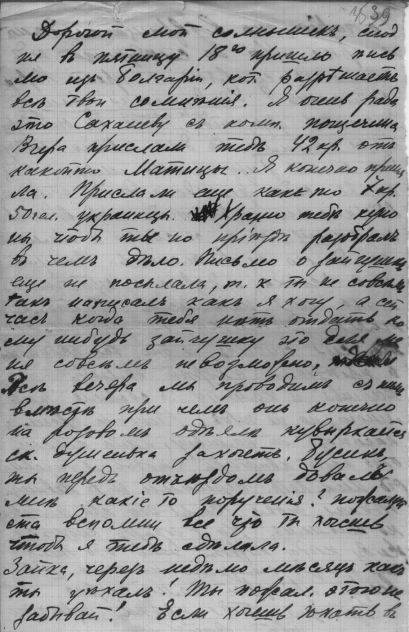 39
Дорогой мой солнышек, сюд
ня в пятницу 18го пришло пись
мо из Болгарии, кот. разрѣшаетъ
всѣ твои сомнѣнія. Я очень рада
что Сахалеву съ комп. пощечина
Вчера прислали тебѣ 42 кр. отъ
какой то Матицы. Я конечно приня
ла. Прислали еще какъ то кр.
50 гел. украинцы. Храню тебѣ
чтобъ ты по пріѣздѣ разобралъ
въ чемъ дѣло. Письмо о зайчушкѣ
еще не послала, т. к. ты не совсѣмъ
такъ написалъ какъ я хочу, а сей
часъ когда тебя нѣтъ отдать ко
му нибудь зайчушку это для ме
ня совсѣмъ невозможно.
Всѣ вечера мы проводимъ съ нимъ
вмѣстѣ при чемъ онъ конечно
на розовомъ одѣялѣ кувыркайтся
ск. душенька захочетъ. Бусинь,
ты передъ отъѣздомъ давалъ
мнѣ какіе то порученія? пожалуй
ста вспомни все что ты хочешь
чтобъ я тебѣ сдѣлала.
Зайка, черезъ недѣлю мѣсяцъ какъ
ты уѣхалъ! Ты пожал. этого не
забывай! Если хочешь ѣхать въ